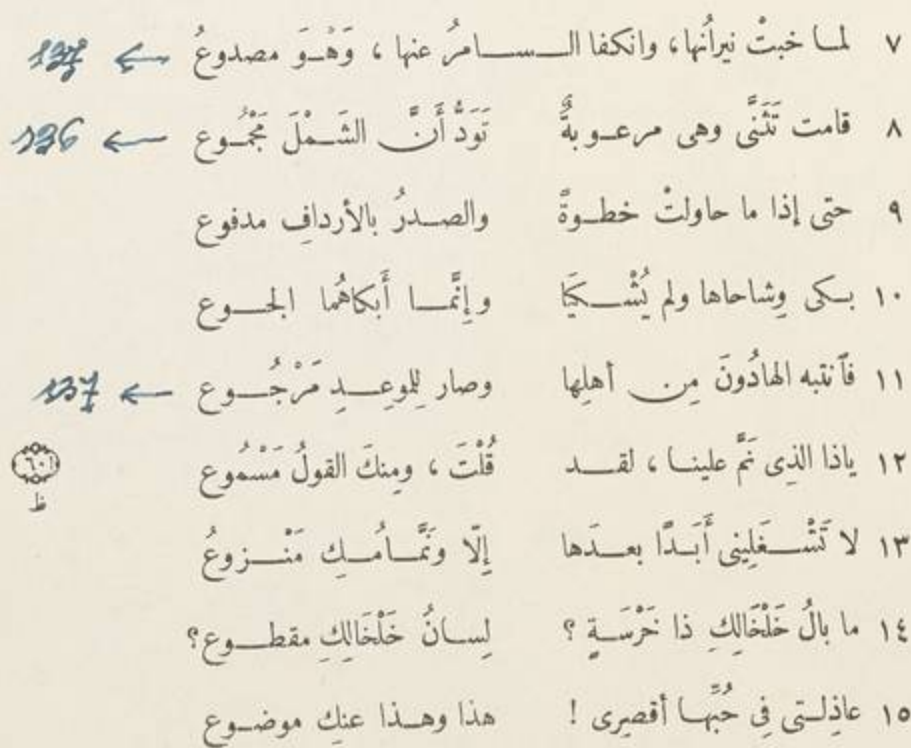 ٧ لمـا خبتْ نيرانُها، وانكفا الـسـامرُ عنها ، وَهْـوَ مصدوعُ ← 137
٨ قامت تَثَنَّى وهى مرعـوبةٌ تَوَدُّ أَنَّ الشَـمْلَ مَجْمُـوع ← 136
٩ حتى إذا ما حاولتْ خطـوةً والصـدرُ بالأردافِ مدفوع
١٠ بـكى وِشاحاها ولم يُشْـكَيَا وإنَّمـا أَبكاهُما الجـوع
١١ فآنتبه الهادُونَ مِن أهلِها وصار لِلموعِـدِ مَرْجُـوع ← 137
١٢ ياذا الذِى نَمَّ علينـا ، لقـد قُلْتَ ، ومِنكَ القولُ مَسْمُوع
٦٠ ظ
١٣ لا تَشْـغَلِينِى أَبَـدًا بعـدَها إلّا ونَمَّـامُـكِ مَنْـزوعُ
١٤ ما بالُ خَلْخَالِكِ ذا خَرْسَـةٍ ؟ لِسـانُ خَلْخَالِكِ مقطـوع؟
١٥ عاذِلـتى فِى حُبِّهـا أقصِرى ! هذا وهـذا عنكِ موضـوع